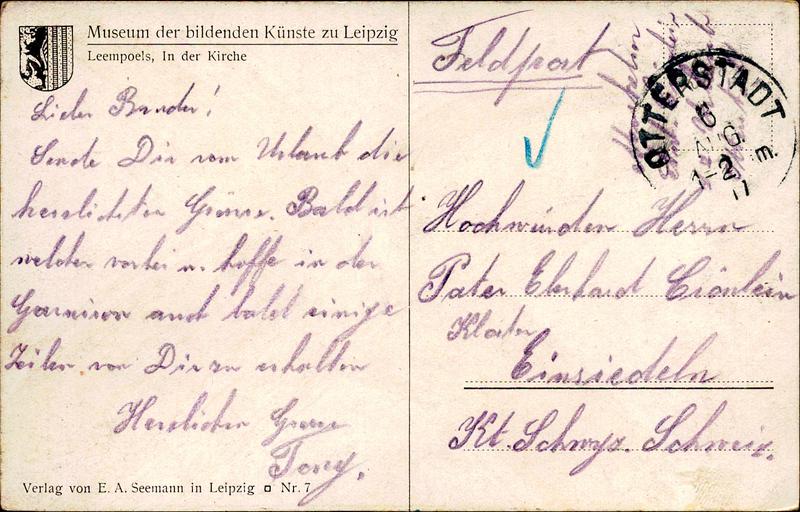 Museum der bildenden Künste zu Leipzig
Leempoels, In der Kirche
Lieber Bruder!
Sende Dir vom Urlaub die
herzlichsten Grüsse. Bald ist
welcher vorbei u. hoffe in der
Garnison auch bald einige
Zeilen von Dir zu erhalten
Herzlichen Gruss
Tony.
Verlag von E. A. Seemann in Leipzig Nr. 7
Feldpost
OTTERSTADT
6
AUG
1-2 N
Hochwürden Herrn
Pater Eberhard Crönlein
Kloster
Einsiedeln
Kt. Schwyz. Schweiz.